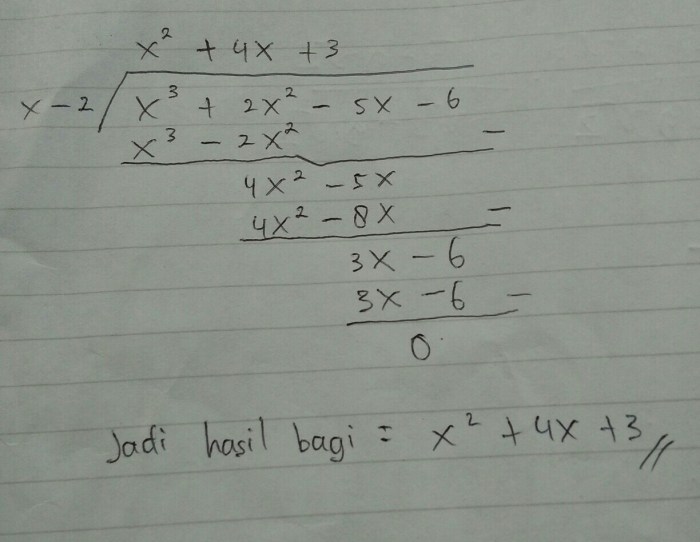 x² + 4x + 3
x - 2 / x³ + 2x² - 5x - 6
x³ - 2x² -
4x² - 5x
4x² - 8x -
3x - 6
3x - 6 -
0
Jadi hasil bagi = x² + 4x + 3 //